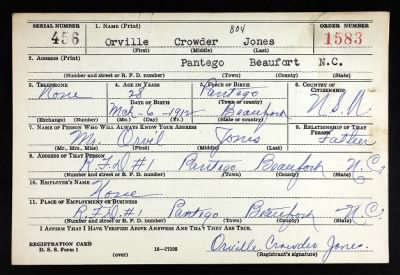 SERIAL NUMBER 1. NAME (Print) 804 ORDER NUMBER
456 Orville Crowder Jones 1583
(First) (Middle) (Last)
2. ADDRESS (Print)
Pantego Beaufort N.C.
(Number and street or R. F. D. number) (Town) (County) (State)
3. TELEPHONE 4. AGE IN YEARS 5. PLACE OF BIRTH 6. COUNTRY OF CITIZENSHIP
None 28 Pantego
DATE OF BIRTH (Town) U.S.A.
Mch 6 1912 Beaufort
(Exchange) (Number) (Mo.) (Day) (Yr.) (State or county)
7. NAME OF PERSON WHO WILL ALWAYS KNOW YOUR ADDRESS 8. RELATIONSHIP OF THAT PERSON
Mr. Orvil Jones Father
(Mr., Mrs., Miss) (First) (Middle) (Last)
9. ADDRESS OF THAT PERSON
R.F.D.#1 Pantego Beaufort N.C.
(Number and street or R. F. D. number) (Town) (County) (State)
10. EMPLOYER'S NAME
None
11. PLACE OF EMPLOYMENT OR BUSINESS
R.F.D.#1 Pantego Beaufort N.C.
(Number and street or R. F. D. number) (Town) (County) (State)
I AFFIRM THAT I HAVE VERIFIED ABOVE ANSWERS AND THAT THEY ARE TRUE.
REGISTRATION CARD Orville Crowder Jones
D. S. S. Form 1 16—17105 (over) (Registrant's signature)